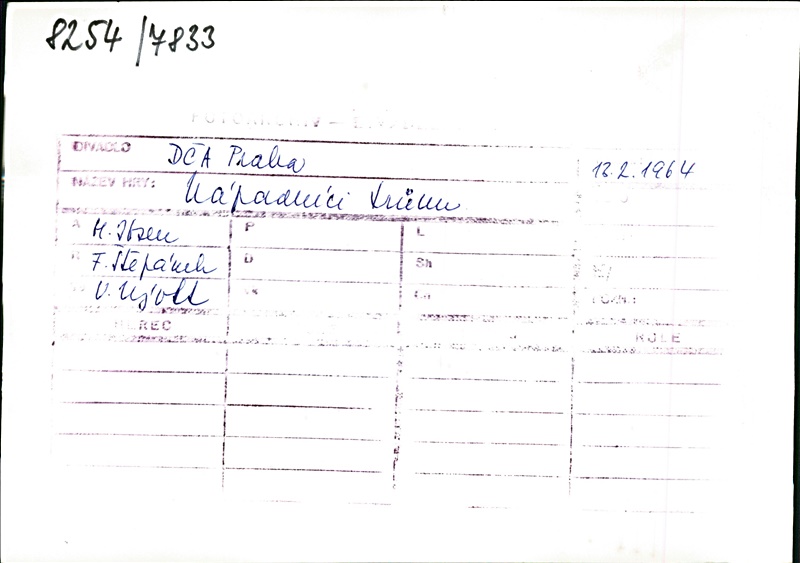 8254/7833
DIVADLO DČA Praha 13.2.1964
NÁZEV HRY: Nápadníci trůnu
A H. Ibsen P L
R F. Štěpánek D Sh
V. Nývlt
HEREC ROLE